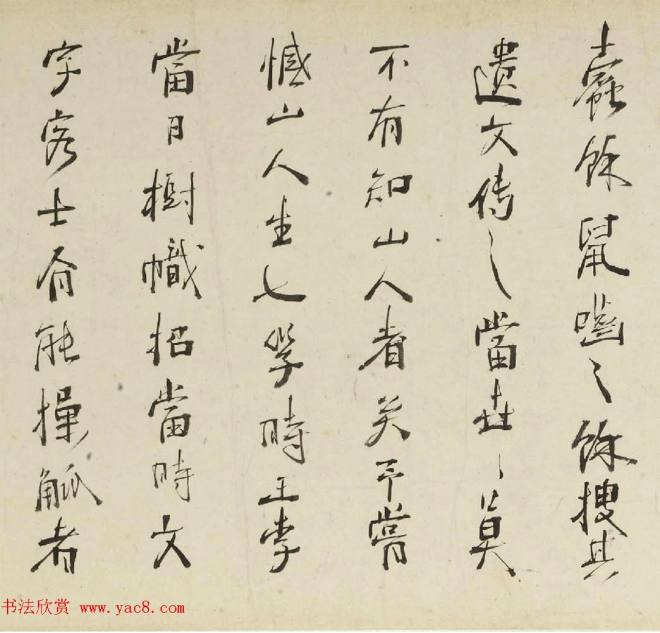 蠹餘鼠嚙之餘搜其
遺文传之當世之莫
不有知山人者矣予嘗
憾山人生也學時王李
當日樹幟招當時文
字客士有能操觚者
书法欣赏 www.yac8.com